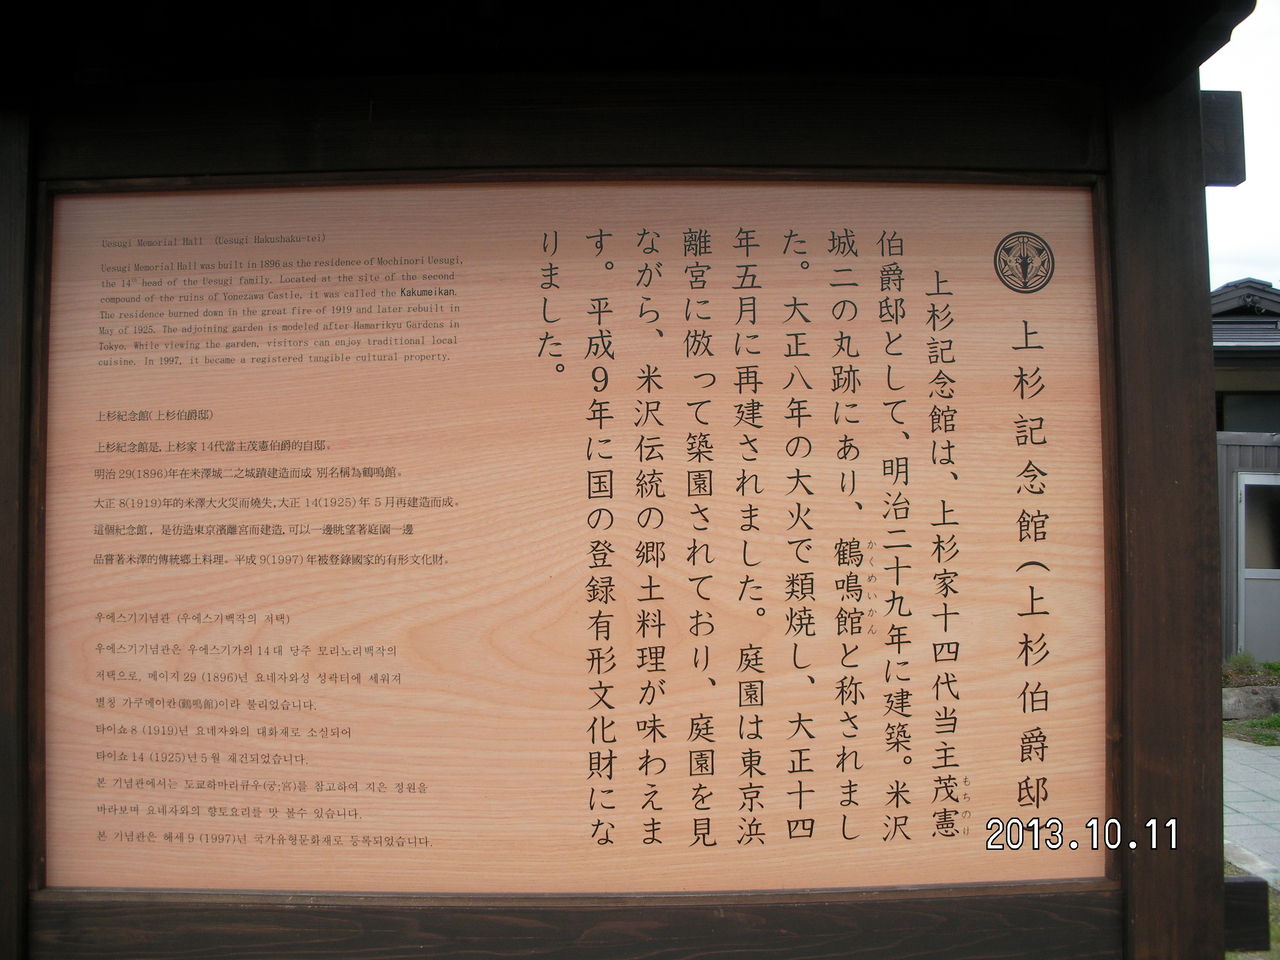 上杉記念館(上杉伯爵邸)
上杉記念館は、上杉家十四代当主茂憲
もちのり
伯爵邸として、明治二十九年に建築。米沢
城二の丸跡にあり、鶴鳴館と称されまし
かくめいかん
た。大正八年の大火で類焼し、大正十四
年五月に再建されました。庭園は東京浜
離宮に倣って築園されており、庭園を見
ながら、米沢伝統の郷土料理が味わえま
す。平成9年に国の登録有形文化財にな
りました。
Uesugi Memorial Hall (Uesugi Hakushaku-tei)
Uesugi Memorial Hall was built in 1896 as the residence of Mochinori Uesugi,
the 14th head of the Uesugi family. Located at the site of the second
compound of the ruins of Yonezawa Castle, it was called the Kakumeikan.
The residence burned down in the great fire of 1919 and later rebuilt in
May of 1925. The adjoining garden is modeled after Hamarikyu Gardens in
Tokyo. While viewing the garden, visitors can enjoy traditional local
cuisine. In 1997, it became a registered tangible cultural property.
上杉紀念館(上杉伯爵邸)
上杉紀念館是,上杉家 14代當主茂憲伯爵的自邸。
明治 29(1896)年在米澤城二之城蹟建造而成 別名稱為鶴鳴館。
大正 8(1919)年的米澤大火災而燒失,大正 14(1925)年 5 月再建造而成。
這個紀念館, 是彷造東京濱離宮而建造,可以一邊眺望著庭園一邊
品嘗著米澤的傳統鄉土料理。平成 9(1997)年被登錄國家的有形文化財。
우에스기기념관 (우에스기백작의 저택)
우에스기기념관은 우에스기가의 14대 당주 모리노리백작의
저택으로, 메이지 29 (1896)년 요네자와성 성곽터에 세워져
별칭 가쿠메이칸(鶴鳴館)이라 불리었습니다.
타이쇼 8 (1919)년 요네자와의 대화재로 소실되어
타이쇼 14 (1925)년 5월 재건되었습니다.
본 기념관에서는 도쿄하마리큐우(궁;宮)를 참고하여 지은 정원을
바라보며 요네자와의 향토요리를 맛 볼수 있습니다.
본 기념관은 헤세 9 (1997)년 국가유형문화재로 등록되었습니다.
2013.10.11